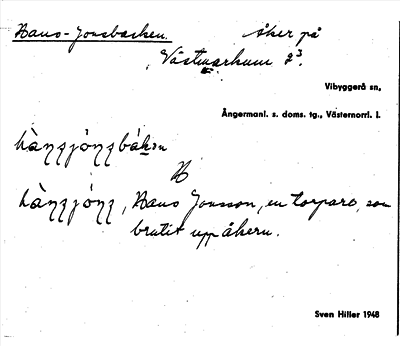 Hans-Jonsbacken. åker på
Västmarkum 2³.
Vibyggerå sn,
Ångermanl. s. doms. tg., Västernorrl. l.
H
Hans Jonsson, en torpare, som
brutit upp åkern.
Sven Hiller 1948